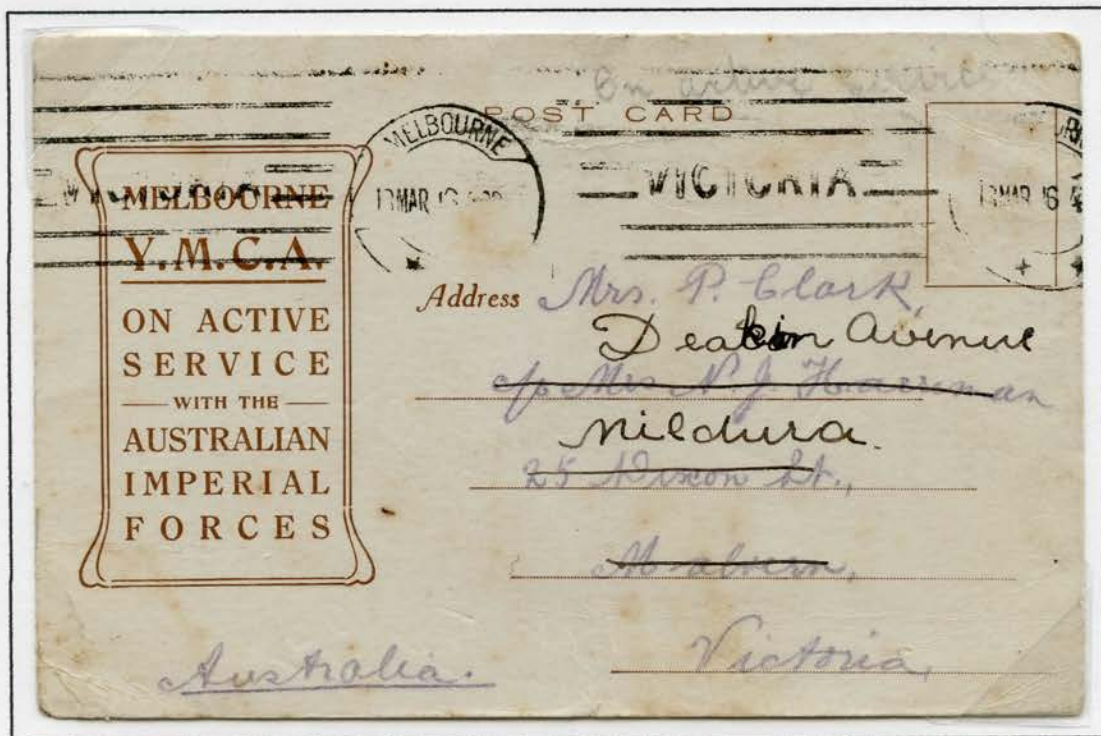 On active service
POST CARD
MELBOURNE
VICTORIA
MAR 16
MELBOURNE
Y.M.C.A.
ON ACTIVE
SERVICE
— WITH THE —
AUSTRALIAN
IMPERIAL
FORCES
Address Mrs. P. Clark,
Deakin Avenue
c/o Mrs N. J.
Mildura.
25 Nixon St.,
Malvern,
Victoria
Australia.